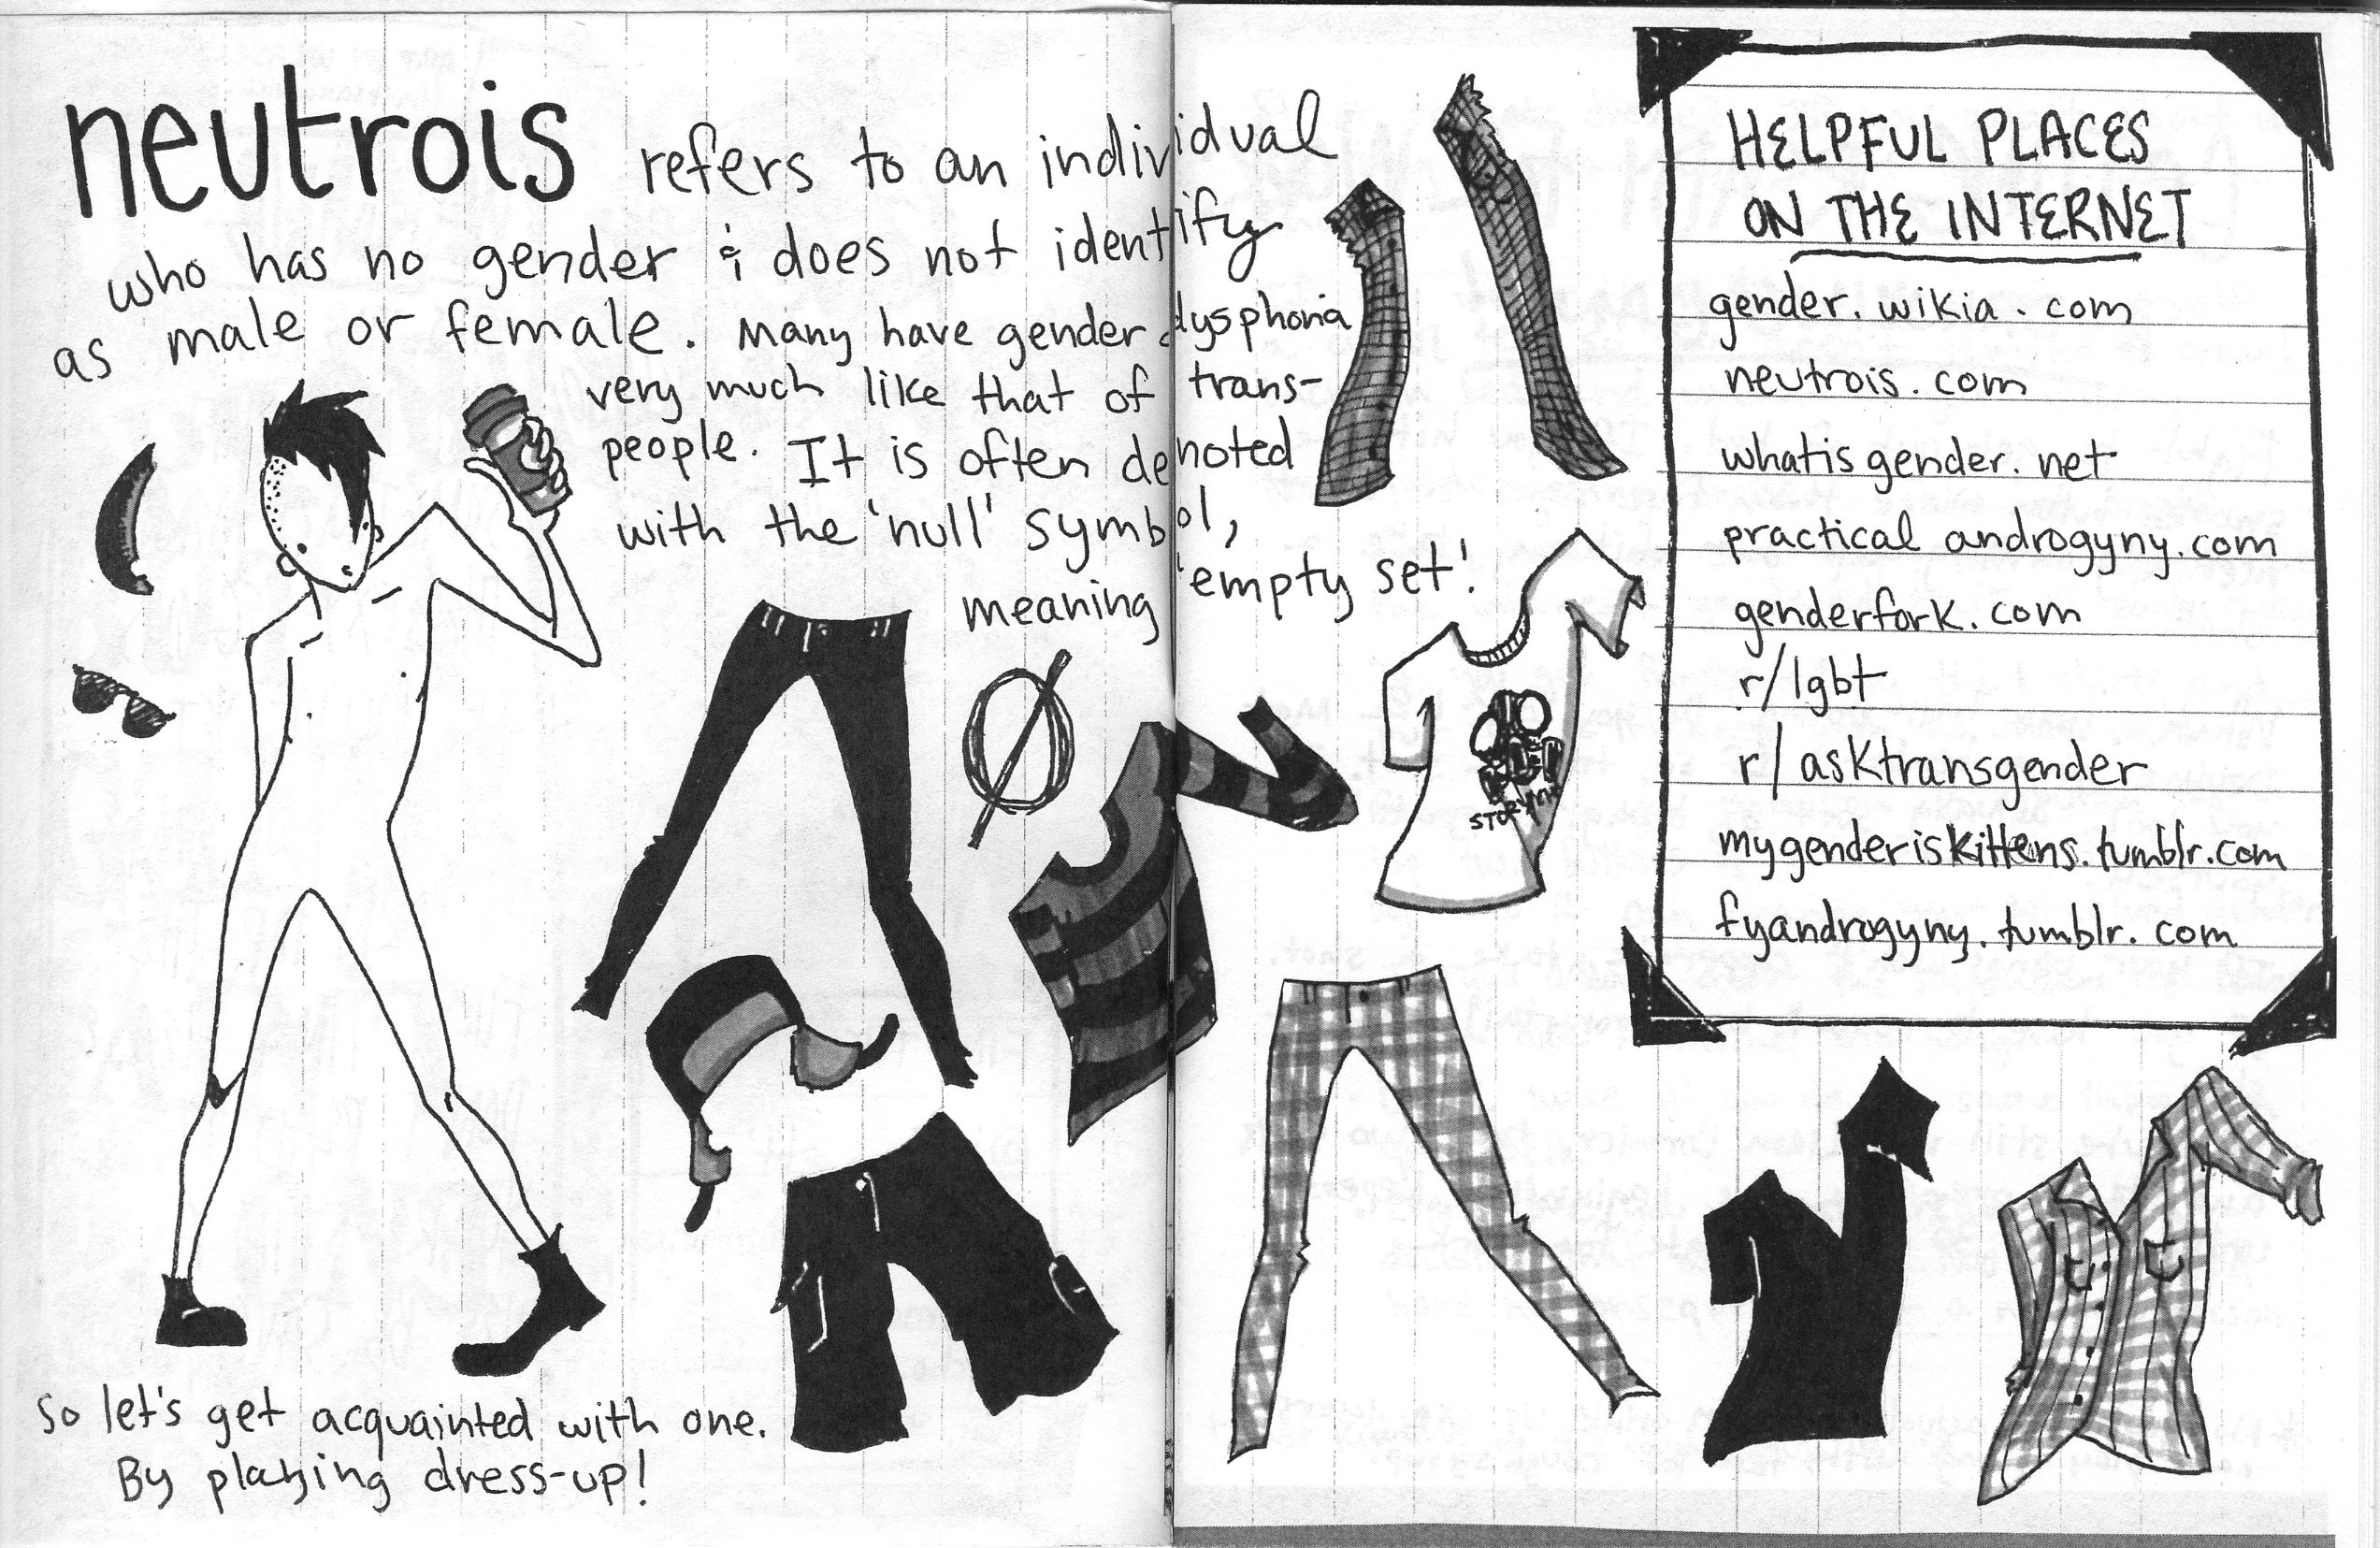 neutrois refers to an individual
who has no gender & does not identify
as male or female. Many have gender dysphoria
very much like that of trans-
people. It is often denoted
with the 'null' symbol,
meaning 'empty set'.
Ø
So let's get acquainted with one.
By playing dress-up!
HELPFUL PLACES
ON THE INTERNET
gender.wikia.com
neutrois.com
whatisgender.net
practicalandrogyny.com
genderfork.com
r/lgbt
r/asktransgender
mygenderiskittens.tumblr.com
fyandrogyny.tumblr.com